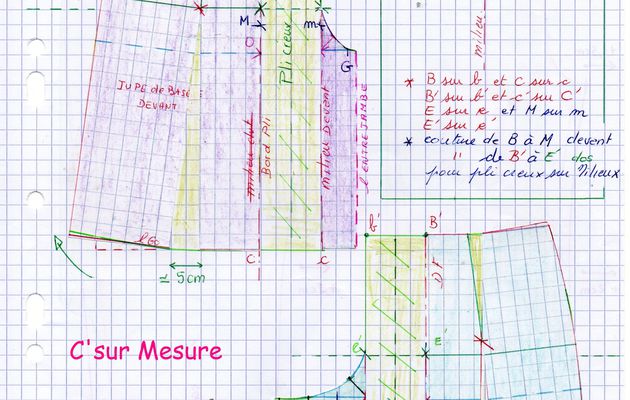 M
m
O
Pli creux
G
milieu
JUPE de BASE
DEVANT
milieu dvt
Bord Pli
Milieu Devant
l'ENTREJAMBE
* B sur b et C sur c
B' sur b' et c' sur C'
E sur e et M sur m
E' sur e'
* couture de B à M devant
" de B' à E' dos
pour pli creux sur Milieux
b' B'
C c
≃ 5cm
C'sur Mesure
e' E'